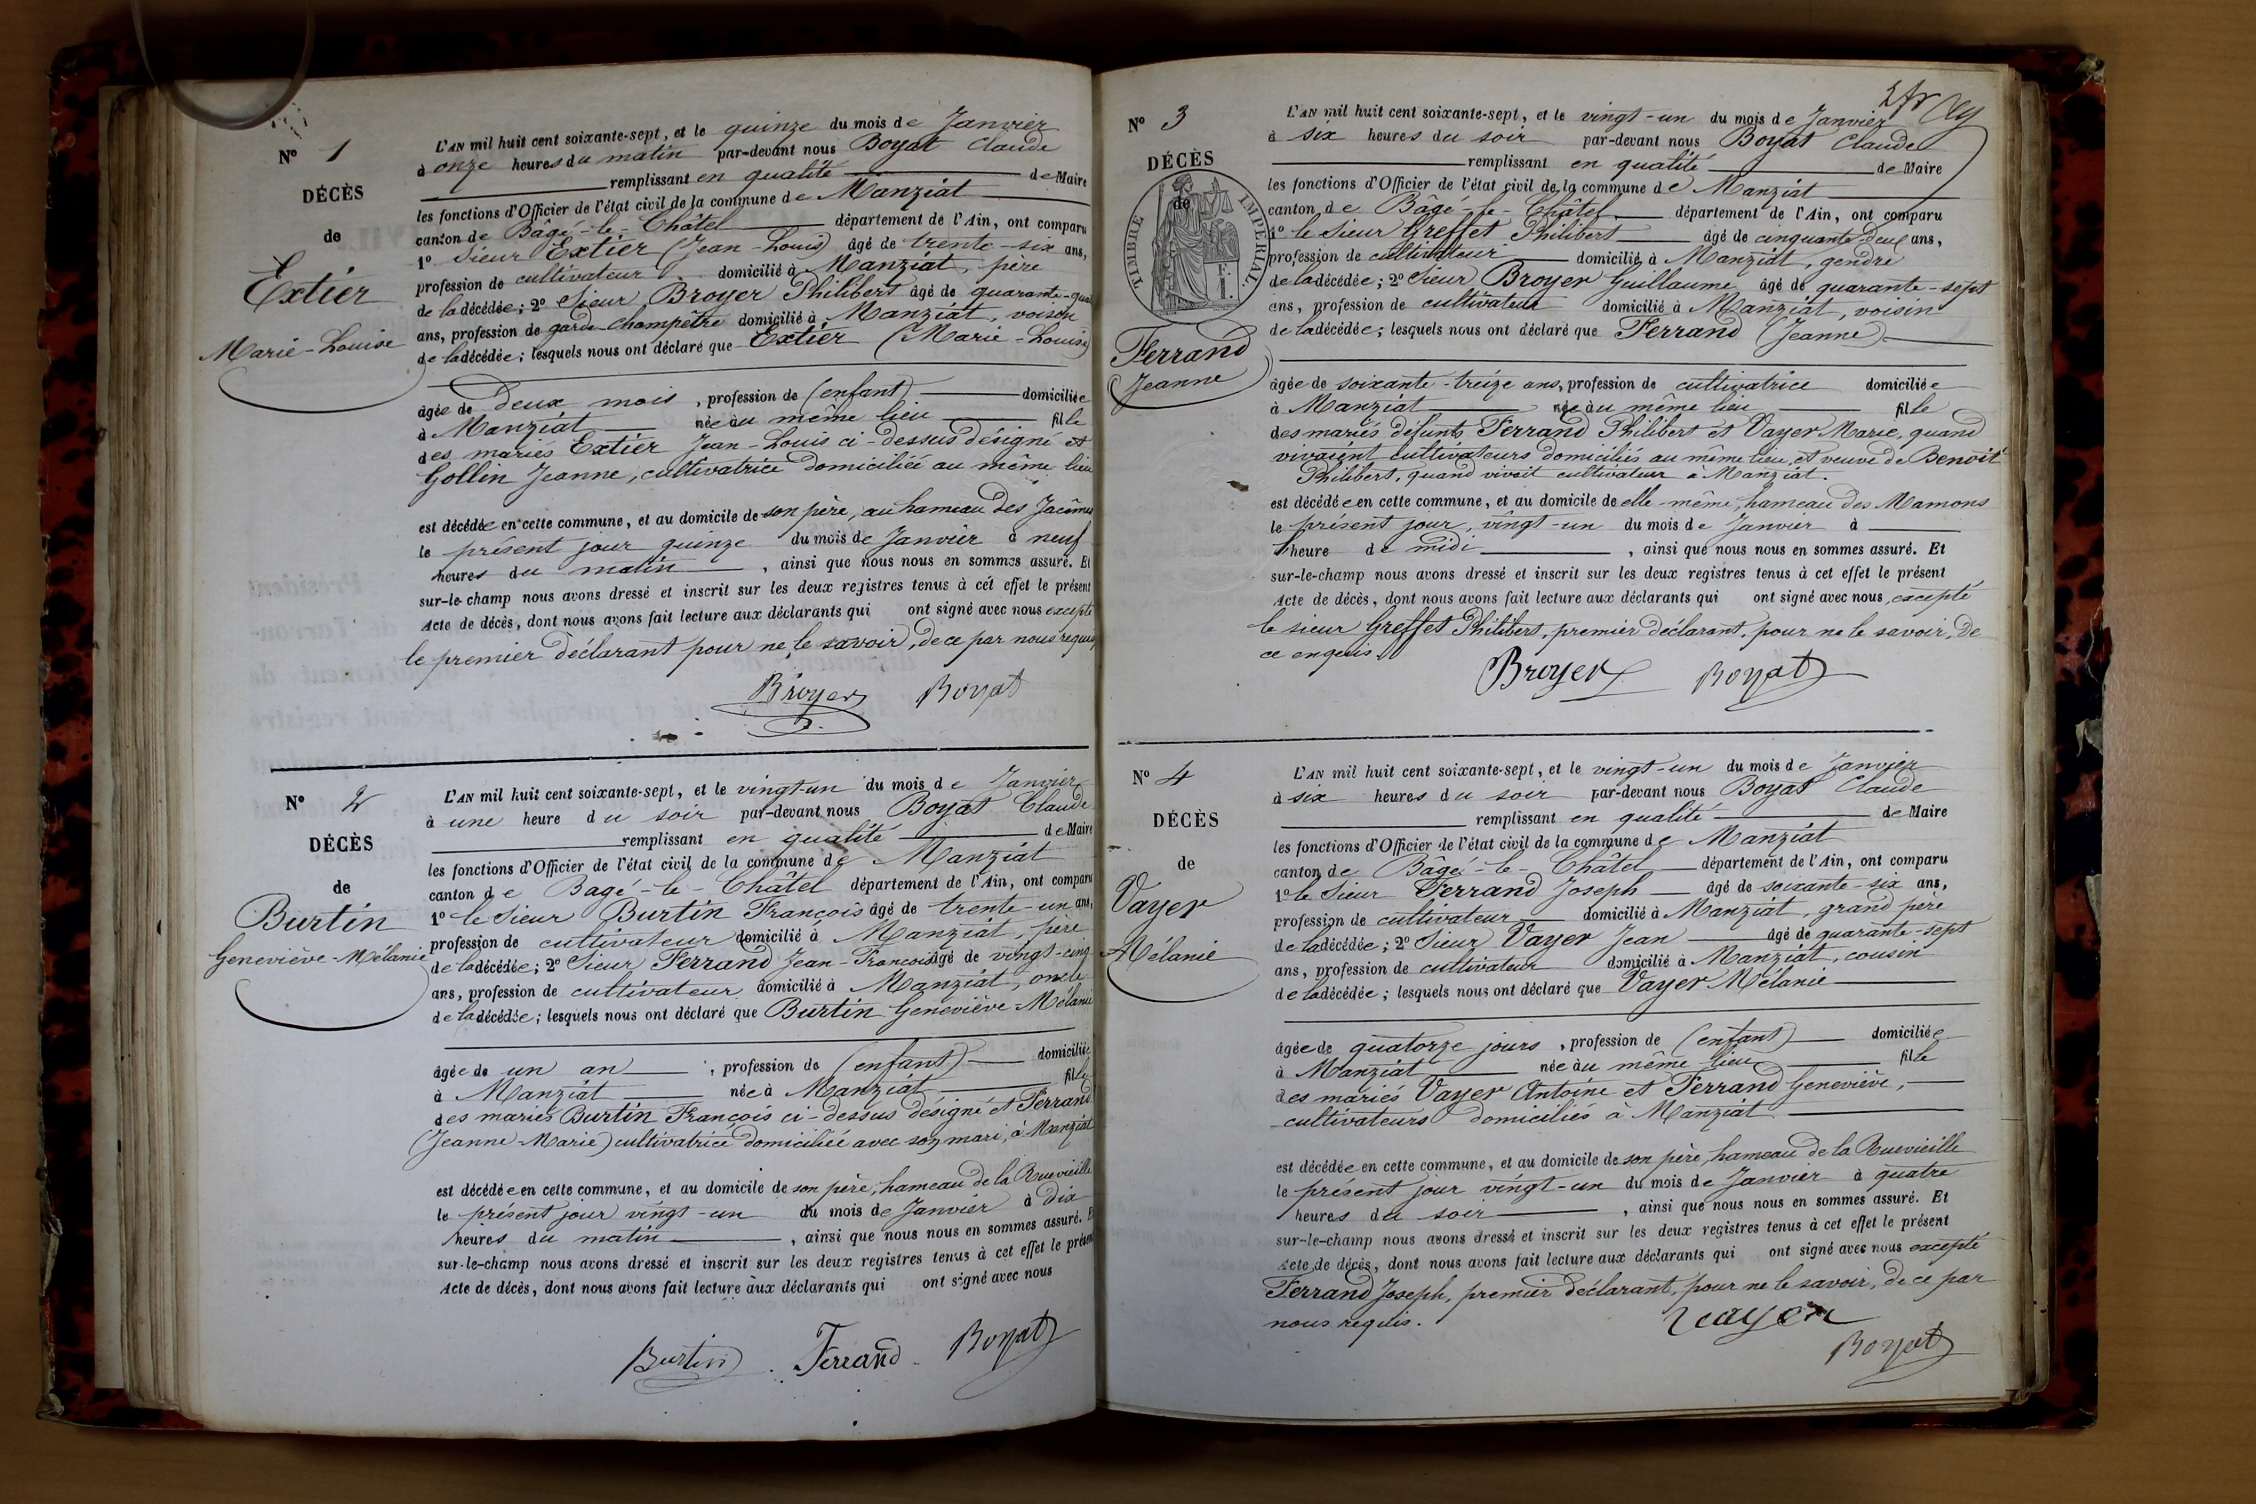 N° 1
DÉCÈS
de
Extier
Marie-Louise
L'AN mil huit cent soixante-sept, et le quinze du mois de Janvier
à onze heures du matin par-devant nous Boyat Claude
remplissant en qualité de Maire
les fonctions d'Officier de l'état civil de la commune de Manziat
canton de Bâgé-le-Châtel département de l'Ain, ont comparu
1° Sieur Extier (Jean-Louis) âgé de trente-six ans,
profession de cultivateur domicilié à Manziat, père
de la décédée; 2° Sieur Broyer Philibert âgé de quarante-
ans, profession de garde-champêtre domicilié à Manziat, voisin
de la décédée; lesquels nous ont déclaré que Extier (Marie-Louise)
âgée de deux mois, profession de (enfant) domiciliée
à Manziat née au même lieu fille
des mariés Extier Jean-Louis ci-dessus désigné et
Gollin Jeanne, cultivatrice domiciliée au même lieu
est décédée en cette commune, et au domicile de son père, au hameau des
le présent jour quinze du mois de Janvier à neuf
heures du matin, ainsi que nous nous en sommes assuré. Et
sur-le-champ nous avons dressé et inscrit sur les deux registres tenus à cet effet le présent
Acte de décès, dont nous avons fait lecture aux déclarants qui ont signé avec nous excepté
le premier déclarant pour ne le savoir, de ce par nous requis
Broyer Boyat
N° 2
DÉCÈS
de
Burtin
Geneviève-Mélanie
L'AN mil huit cent soixante-sept, et le vingt-un du mois de Janvier
à une heure du soir par-devant nous Boyat Claude
remplissant en qualité de Maire
les fonctions d'Officier de l'état civil de la commune de Manziat
canton de Bagé-le-Châtel département de l'Ain, ont comparu
1° le Sieur Burtin François âgé de trente-un ans,
profession de cultivateur domicilié à Manziat, père
de la décédée; 2° Sieur Ferrand Jean-François âgé de vingt-cinq
ans, profession de cultivateur domicilié à Manziat, oncle
de la décédée; lesquels nous ont déclaré que Burtin Geneviève-Mélanie
âgée de un an, profession de (enfant) domiciliée
à Manziat née à Manziat fille
des mariés Burtin François ci-dessus désigné et Ferrand
(Jeanne-Marie) cultivatrice domiciliée avec son mari, à Manziat
est décédée en cette commune, et au domicile de son père, hameau de la Ruevieille
le présent jour vingt-un du mois de Janvier à dix
heures du matin, ainsi que nous nous en sommes assuré. Et
sur-le-champ nous avons dressé et inscrit sur les deux registres tenus à cet effet le présent
Acte de décès, dont nous avons fait lecture aux déclarants qui ont signé avec nous
Burtin Ferrand Boyat
N° 3
DÉCÈS
de
TIMBRE IMPERIAL
Ferrand
(Jeanne
L'AN mil huit cent soixante-sept, et le vingt-un du mois de Janvier
à six heures du soir par-devant nous Boyat Claude
remplissant en qualité de Maire
les fonctions d'Officier de l'état civil de la commune de Manziat
canton de Bâgé-le-Châtel département de l'Ain, ont comparu
1° le Sieur Greffet Philibert âgé de cinquante-deux ans,
profession de cultivateur domicilié à Manziat, gendre
de la décédée; 2° Sieur Broyer Guillaume âgé de quarante-sept
ans, profession de cultivateur domicilié à Manziat, voisin
de la décédée; lesquels nous ont déclaré que Ferrand (Jeanne)
âgée de soixante-treize ans, profession de cultivatrice domiciliée
à Manziat née au même lieu fille
des mariés défunts Ferrand Philibert et Vayer Marie, quand
vivaient cultivateurs domiciliés au même lieu, et veuve de Benoit
Philibert, quand vivait cultivateur à Manziat.
est décédée en cette commune, et au domicile de elle-même, hameau des Mamons
le présent jour, vingt-un du mois de Janvier à
heure de midi, ainsi que nous nous en sommes assuré. Et
sur-le-champ nous avons dressé et inscrit sur les deux registres tenus à cet effet le présent
Acte de décès, dont nous avons fait lecture aux déclarants qui ont signé avec nous, excepté
le sieur Greffet Philibert, premier déclarant, pour ne le savoir, de
ce enquis.
Broyer Boyat
N° 4
DÉCÈS
de
Vayer
Mélanie
L'AN mil huit cent soixante-sept, et le vingt-un du mois de Janvier
à six heures du soir par-devant nous Boyat Claude
remplissant en qualité de Maire
les fonctions d'Officier de l'état civil de la commune de Manziat
canton de Bâgé-le-Châtel département de l'Ain, ont comparu
1° le Sieur Ferrand Joseph âgé de soixante-six ans,
profession de cultivateur domicilié à Manziat, grand père
de la décédée; 2° Sieur Vayer Jean âgé de quarante-sept
ans, profession de cultivateur domicilié à Manziat, cousin
de la décédée; lesquels nous ont déclaré que Vayer Mélanie
âgée de quatorze jours, profession de (enfant) domiciliée
à Manziat née au même lieu fille
des mariés Vayer Antoine et Ferrand Geneviève,
cultivateurs domiciliés à Manziat
est décédée en cette commune, et au domicile de son père, hameau de la Ruevieille
le présent jour vingt-un du mois de Janvier à quatre
heures du soir, ainsi que nous nous en sommes assuré. Et
sur-le-champ nous avons dressé et inscrit sur les deux registres tenus à cet effet le présent
Acte de décès, dont nous avons fait lecture aux déclarants qui ont signé avec nous excepté
Ferrand Joseph, premier déclarant, pour ne le savoir, de ce par
nous requis.
Vayer
Boyat